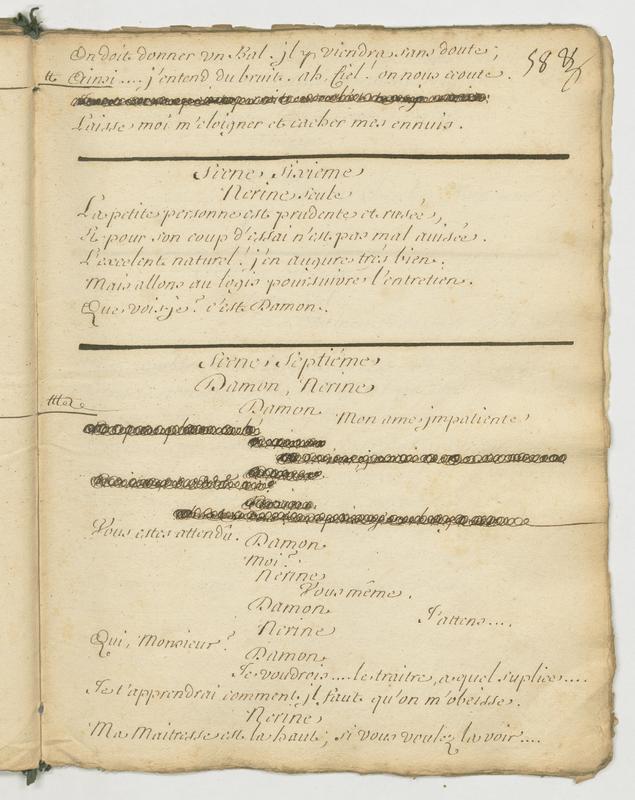 On doit donner un Bal. jl y viendra sans doute;
Ainsi.... j'entend du bruit. ah Ciel! on nous écoute.
Laisse moi m'éloigner et cacher mes ennuis.
Scene Sixieme
Nerine seule
La petite personne est prudente et rusée,
Et pour son coup d'essai n'est pas mal avisée.
L'excelent naturel! j'en augure très bien.
Mais allons au logis poursuivre l'entretien.
Que vois-je? c'est Damon.
Scene Septiéme
Damon, Nerine
Damon
Mon ame jmpatiente
Vous estes attendû.
Damon
Moi?
Nerine
Vous même.
Damon
J'attens....
Nerine
Qui, Monsieur?
Damon
Je voudrois.... le traitre, a quel suplice....
Je t'apprendrai comment jl faut qu'on m'obeisse.
Nerine
Ma Maitresse est la haut; si vous voulez la voir....